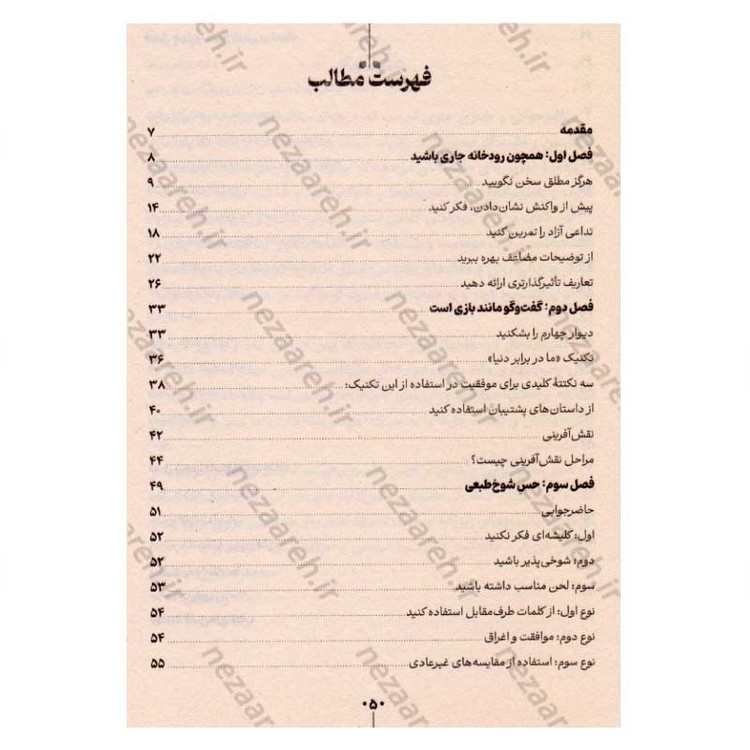 فهرست مطالب
مقدمه ۷
فصل اول: همچون رودخانه جاری باشید ۸
هرگز مطلق سخن نگویید ۹
پیش از واکنش نشان‌دادن، فکر کنید ۱۴
تداعی آزاد را تمرین کنید ۱۸
از توضیحات مضاعف بهره ببرید ۲۲
تعاریف تأثیرگذارتری ارائه دهید ۲۶
فصل دوم: گفت‌وگو مانند بازی است ۳۳
دیوار چهارم را بشکنید ۳۳
تکنیک «ما در برابر دنیا» ۳۶
سه نکتهٔ کلیدی برای موفقیت در استفاده از این تکنیک: ۳۸
از داستان‌های پشتیبان استفاده کنید ۴۰
نقش‌آفرینی ۴۲
مراحل نقش‌آفرینی چیست؟ ۴۴
فصل سوم: حس شوخ‌طبعی ۴۹
حاضرجوابی ۵۱
اول: کلیشه‌ای فکر نکنید ۵۲
دوم: شوخی‌پذیر باشید ۵۲
سوم: لحن مناسب داشته باشید ۵۳
نوع اول: از کلمات طرف‌مقابل استفاده کنید ۵۴
نوع دوم: موافقت و اغراق ۵۴
نوع سوم: استفاده از مقایسه‌های غیرعادی ۵۵
۰۵۰
nezaareh.ir